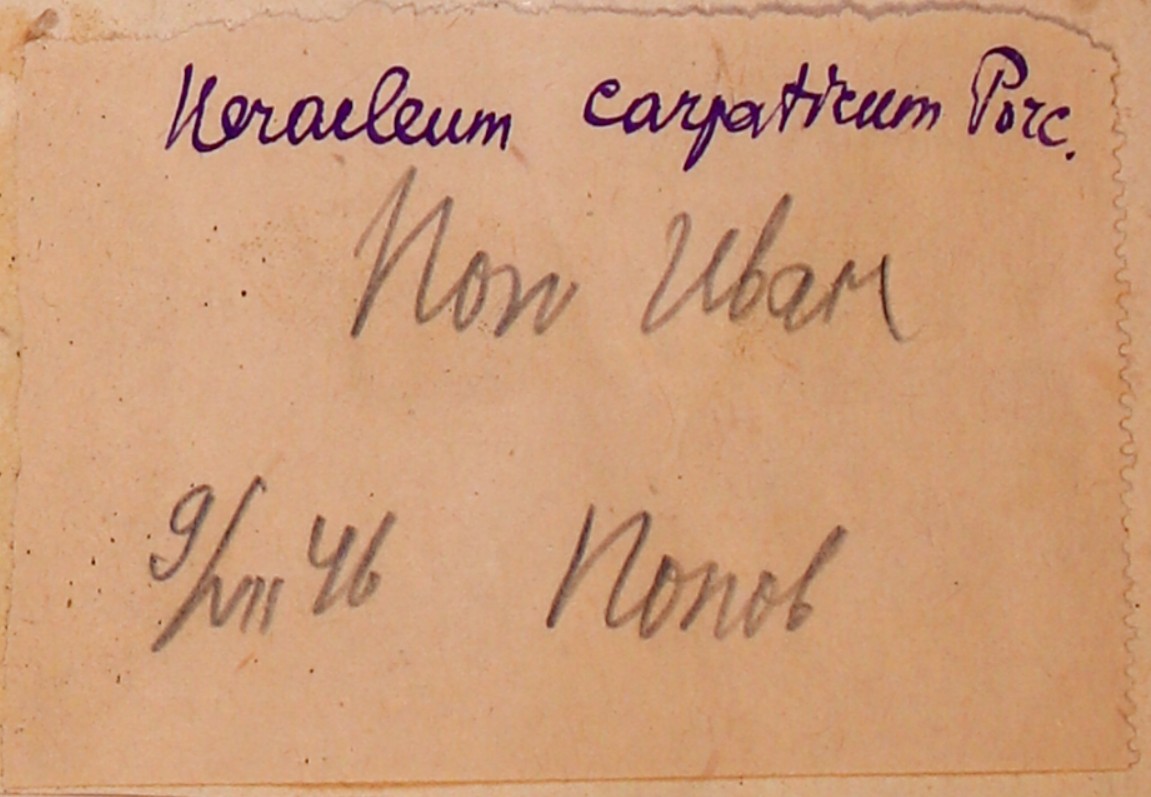 Heracleum carpaticum Porc.
Поп Иван
9/VII 46 Попов